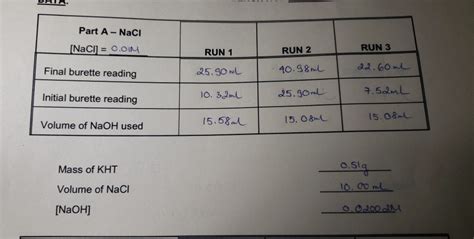 DATA:
Part A – NaCl
[NaCl] = 0.01M RUN 1 RUN 2 RUN 3
Final burette reading 25.90ml 40.98ml 22.60ml
Initial burette reading 10.32ml 25.90ml 7.52ml
Volume of NaOH used 15.58ml 15.08ml 15.08ml
Mass of KHT 0.51g
Volume of NaCl 10.00ml
[NaOH]